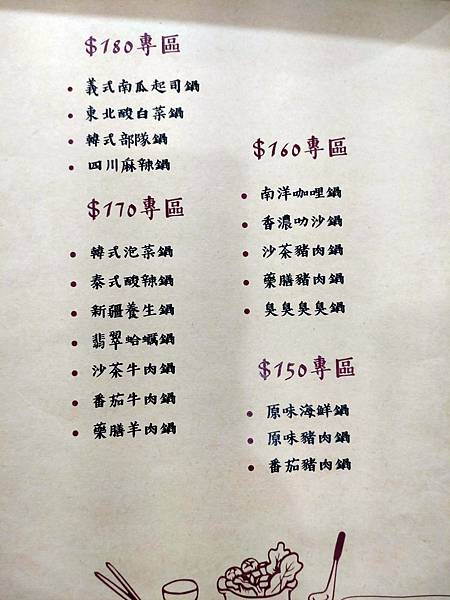 $180專區
義式南瓜起司鍋
東北酸白菜鍋
韓式部隊鍋
四川麻辣鍋
$170專區
韓式泡菜鍋
泰式酸辣鍋
新疆養生鍋
翡翠蛤蠣鍋
沙茶牛肉鍋
番茄牛肉鍋
藥膳羊肉鍋
$160專區
南洋咖哩鍋
香濃叻沙鍋
沙茶豬肉鍋
藥膳豬肉鍋
臭臭臭臭鍋
$150專區
原味海鮮鍋
原味豬肉鍋
番茄豬肉鍋